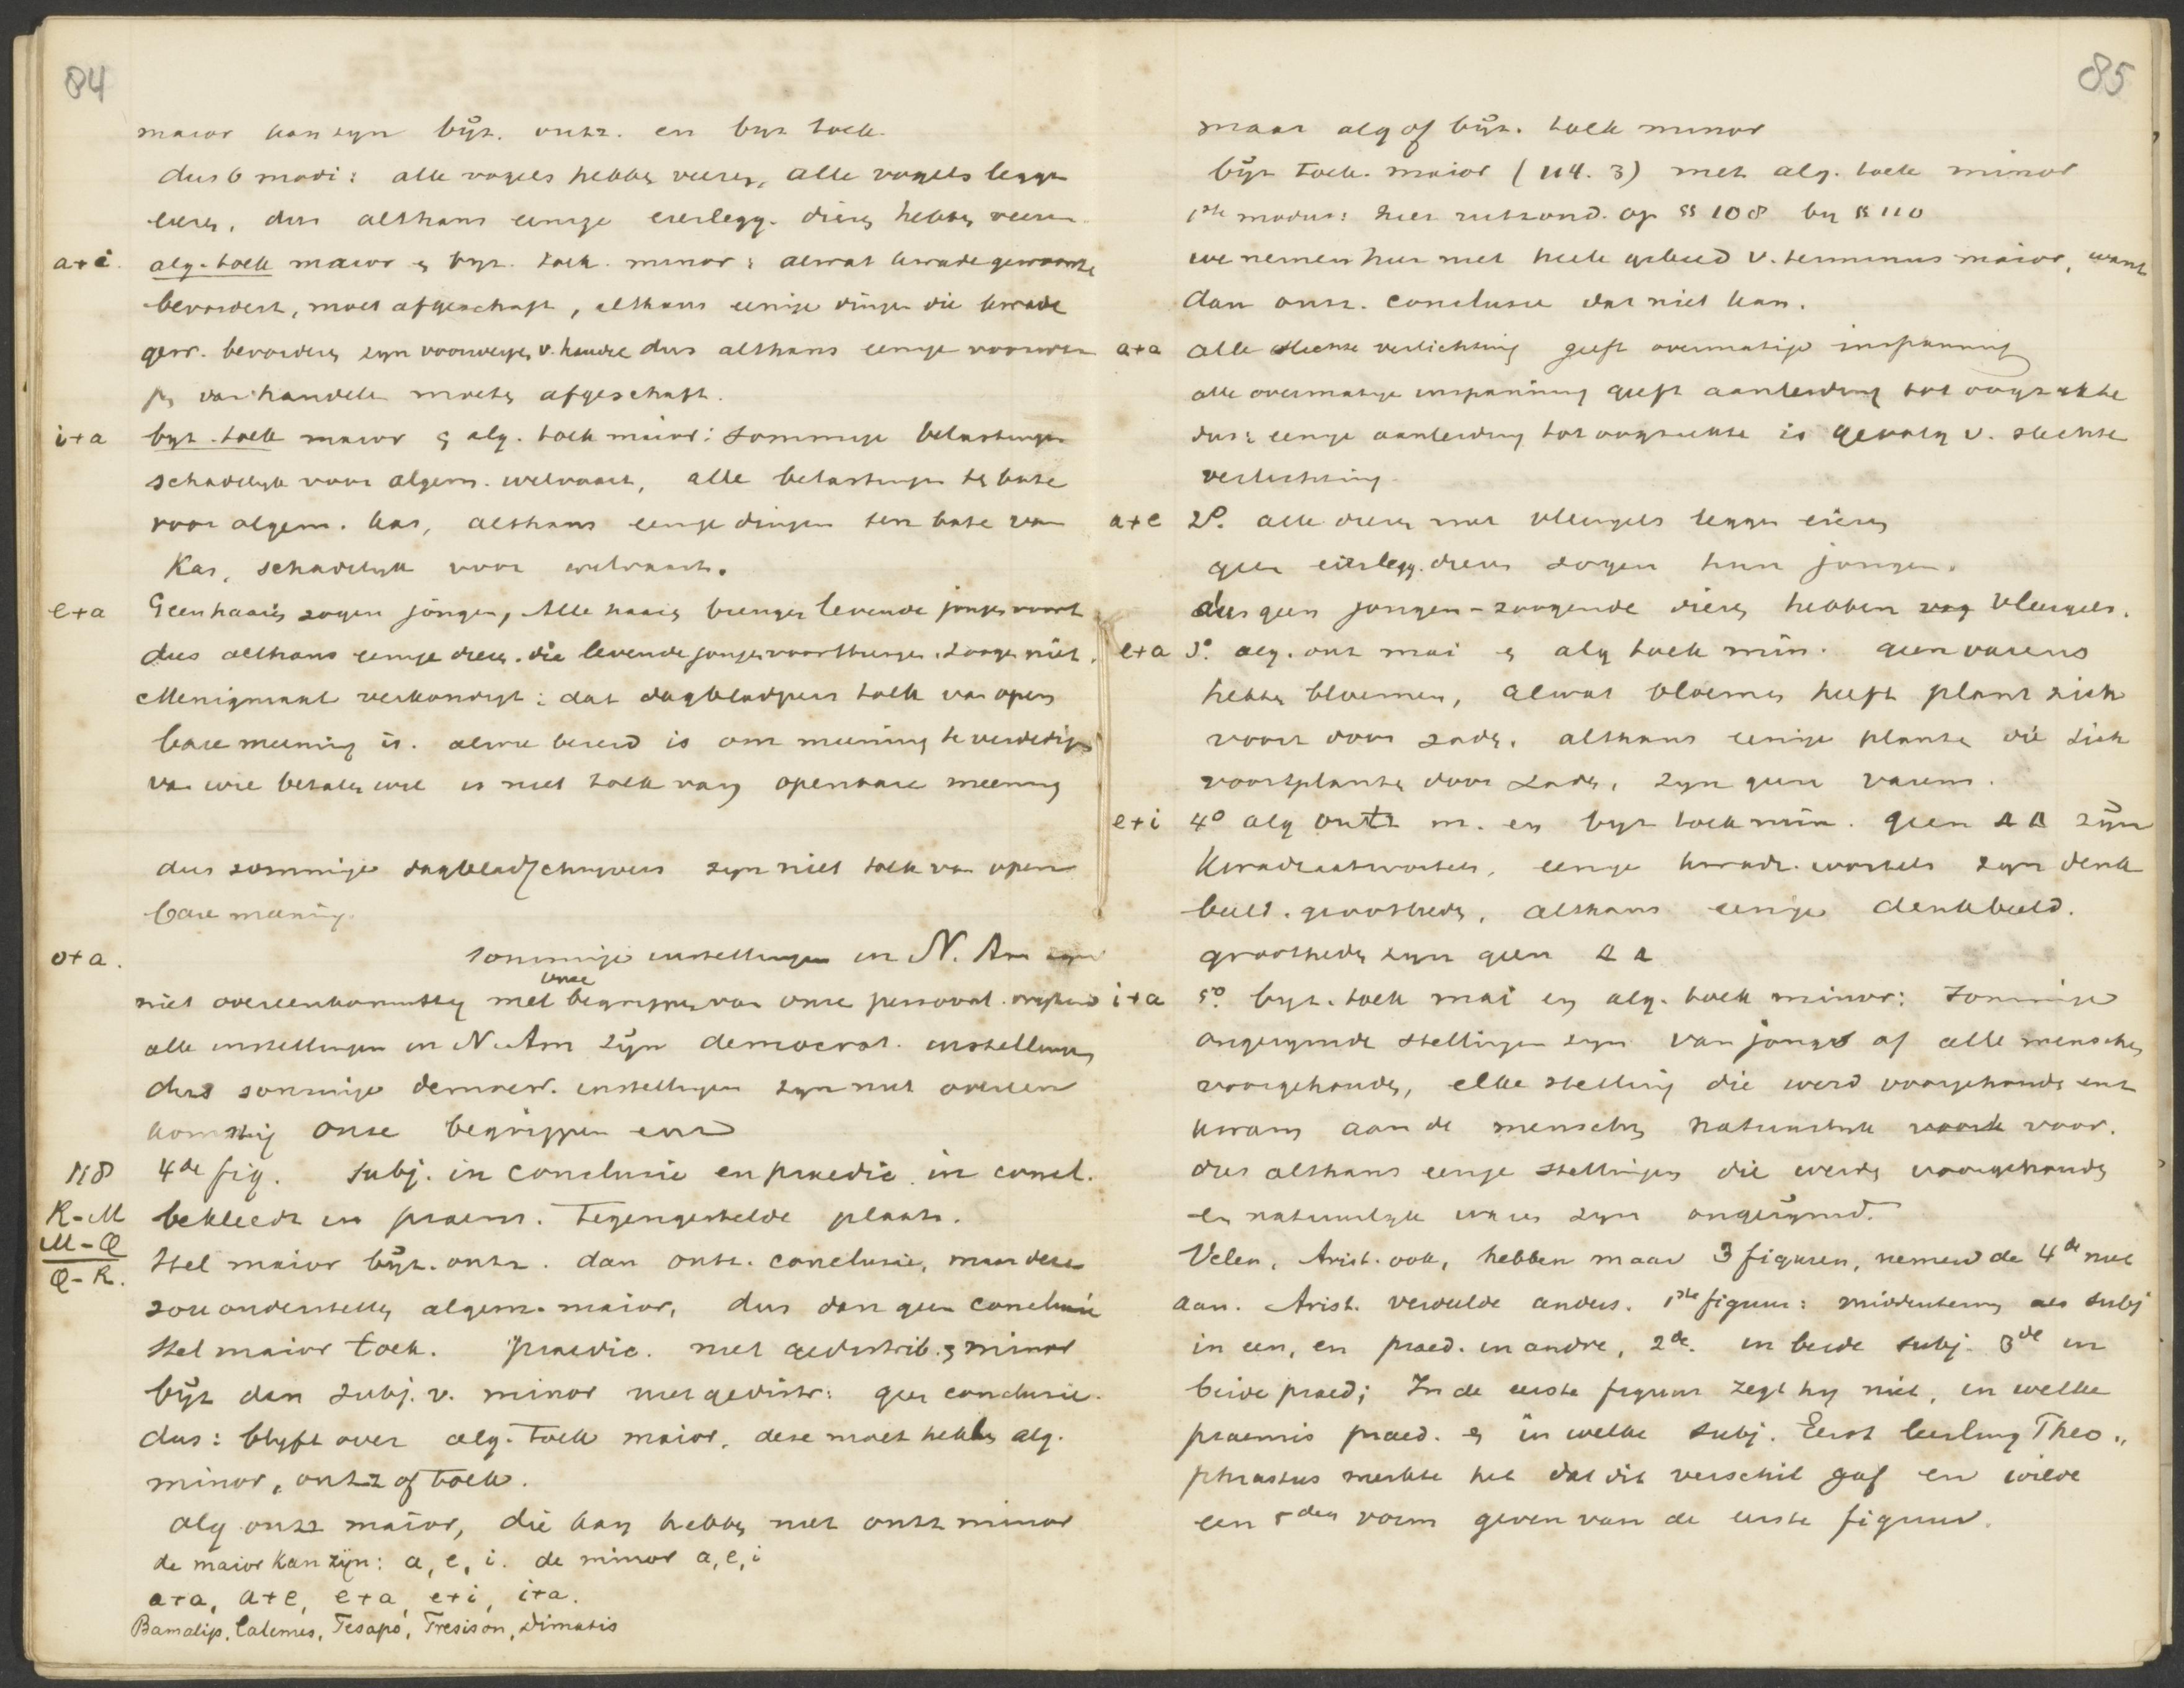 84
maior kan zyn byz. ontz. en byz toek.
dus 6 modi: alle vogels hebben veeren, alle vogels leggen
eieren, dus althans eenige eierlegg. dieren hebben veeren
a+i. alg. toek maior en byz. toek. minor: alwat kwade gewoonte
bevordert, moet afgeschaft, althans eenige dingen die kwade
gew. bevorderen zyn voorwerpen v. handel dus althans eenige voorwer
pen van handel moeten afgeschaft.
i+a byz. toek maior en alg. toek minor: sommige belastingen
schadelyk voor algem. welvaart, alle belastingen te bate
voor algem. kas, althans eenige dingen ten bate van
Kas, schadelyk voor welvaart.
e+a Geen haaien zogen jongen, Alle haaien brengen levende jongen voort
dus althans eenige dieren die levende jongen voortbrengen zoogen niet.
Menigmaal verkondigt: dat dagbladpers tolk van open
bare meening is. alwie bereid is om meening te verdedigen
van wie betalen wil is niet tolk van openbare meening
dus sommige dagbladschryvers zyn niet tolk van open
bare meening.
o+a. sommige instellingen in N. Am zyn
niet overeenkomstig met onze begrippen van onze persoonl. vryheid
alle instellingen in N. Am zyn democrat. instellingen
dus sommige democr. instellingen zyn niet overeen
komstig onze begrippen enz
118 4de fig. subj. in conclusie en praedic. in concl.
R-M bekleedt in praem. Tegengestelde plaats.
M-Q
Q-R. Stel maior byz. ontz. dan ontz. conclusie, maar deze
zou onderstellen algem. maior, dus dan geen conclusie
Stel maior toek. praedic. niet gedistrib. en minor
byz dan subj. v. minor niet gedistr: geen conclusie.
dus: blyft over alg. toek maior, deze moet hebben alg.
minor, ontz of toek.
alg ontz maior, die kan hebben niet ontz minor
de maior kan zijn: a, e, i. de minor a, e, i
a+a, a+e, e+a, e+i, i+a.
Bamalip, Calemes, Fesapo, Fresison, Dimatis
85
maar alg of byz. toek minor
byz toek. maior (114. 3) met alg. toek minor
1ste modus: hier rustend. op §§ 108 by § 110
we nemen hier niet heele gebied v. terminus maior, want
dan ontz. conclusie dat niet kan.
a+a alle slechte verlichting geeft overmatige inspanning
alle overmatige inspanning geeft aanleiding tot oogziekte
dus: eenige aanleiding tot oogziekte is gevolg v. slechte
verlichting.
a+e 2o. alle dieren met vleugels leggen eieren
geen eierlegg. dieren zogen hun jongen.
dus geen jongen-zoogende dieren hebben vleugels.
e+a 3o. alg. ont mai en alg toek min. geen varens
hebben bloemen, alwat bloemen heeft plant zich
voort door zaden. althans eenige planten die zich
voortplanten door zaden, zyn geen varens.
e+i 4o alg ontz m. en byz toek min. geen △△ zyn
kwadraatwortels, eenige kwadr. wortels zyn denk
beeld. grootheden, althans eenige denkbeeld.
grootheden zyn geen △△
i+a 5o. byz. toek mai en alg. toek minor: Sommige
ongerymde stellingen zyn van jongs af alle menschen
voorgehouden, elke stelling die werd voorgehouden ent
kwam aan de menschen natuurlyk voor.
dus althans eenige stellingen die werden voorgehouden
en natuurlyk waren zyn ongerymd.
Velen, Arist. ook, hebben maar 3 figuren, nemen de 4de niet
aan. Arist. verdeelde anders. 1ste figuur: middenterm als subj
in een, en praed. in andre, 2de. in beide subj. 3de in
beide praed; In de eerste figuur zegt hy niet, in welke
praemis praed. en in welke subj. Eerst leerling Theo„
phrastus merkte het dat dit verschil gaf en wilde
een 5den vorm geven van de eerste figuur.